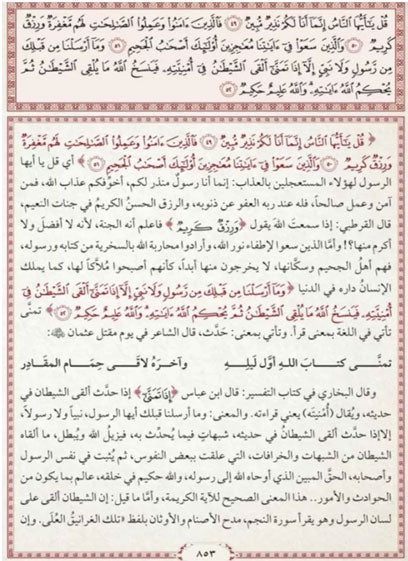 قُلْ يَٰٓأَيُّهَا ٱلنَّاسُ إِنَّمَآ أَنَا۠ لَكُمْ نَذِيرٌ مُّبِينٌ ۝٤٩ فَٱلَّذِينَ ءَامَنُوا۟ وَعَمِلُوا۟ ٱلصَّٰلِحَٰتِ لَهُم مَّغْفِرَةٌ وَرِزْقٌ
كَرِيمٌ ۝٥٠ وَٱلَّذِينَ سَعَوْا۟ فِىٓ ءَايَٰتِنَا مُعَٰجِزِينَ أُو۟لَٰٓئِكَ أَصْحَٰبُ ٱلْجَحِيمِ ۝٥١ وَمَآ أَرْسَلْنَا مِن قَبْلِكَ
مِن رَّسُولٍ وَلَا نَبِىٍّ إِلَّآ إِذَا تَمَنَّىٰٓ أَلْقَى ٱلشَّيْطَٰنُ فِىٓ أُمْنِيَّتِهِۦ فَيَنسَخُ ٱللَّهُ مَا يُلْقِى ٱلشَّيْطَٰنُ ثُمَّ
يُحْكِمُ ٱللَّهُ ءَايَٰتِهِۦ ۗ وَٱللَّهُ عَلِيمٌ حَكِيمٌ ۝٥٢
﴿ قُلْ يَٰٓأَيُّهَا ٱلنَّاسُ إِنَّمَآ أَنَا۠ لَكُمْ نَذِيرٌ مُّبِينٌ ۝٤٩ فَٱلَّذِينَ ءَامَنُوا۟ وَعَمِلُوا۟ ٱلصَّٰلِحَٰتِ لَهُم مَّغْفِرَةٌ
وَرِزْقٌ كَرِيمٌ ۝٥٠ وَٱلَّذِينَ سَعَوْا۟ فِىٓ ءَايَٰتِنَا مُعَٰجِزِينَ أُو۟لَٰٓئِكَ أَصْحَٰبُ ٱلْجَحِيمِ ۝٥١ ﴾ أي قل يا أيها
الرسول لهؤلاء المستعجلين بالعذاب: إنما أنا رسولٌ منذر لكم، أخوِّفكم عذاب الله، فمن
آمن وعمل صالحاً، فله عند ربه العفو عن ذنوبه، والرزق الحسنُ الكريمُ في جنات النعيم،
قال القرطبي: إذا سمعتَ الله يقول ﴿وَرِزْقٌ كَرِيمٌ﴾ فاعلم أنه الجنة، لأنه لا أفضلَ ولا
أكرم منها؟! وأمَّا الذين سعوا لإطفاء نور الله، وأرادوا محاربة الله بالسخرية من كتابه ورسوله،
فهم أهلُ الجحيم وسكَّانها، لا يخرجون منها أبداً، كأنهم أصبحوا مُلاَّكاً لها، كما يملك
الإنسانُ داره في الدنيا ﴿وَمَآ أَرْسَلْنَا مِن قَبْلِكَ مِن رَّسُولٍ وَلَا نَبِىٍّ إِلَّآ إِذَا تَمَنَّىٰٓ أَلْقَى ٱلشَّيْطَٰنُ فِىٓ
أُمْنِيَّتِهِۦ فَيَنسَخُ ٱللَّهُ مَا يُلْقِى ٱلشَّيْطَٰنُ ثُمَّ يُحْكِمُ ٱللَّهُ ءَايَٰتِهِۦ ۗ وَٱللَّهُ عَلِيمٌ حَكِيمٌ ۝٥٢﴾ تمنَّى
تأتي في اللغة بمعنى قرأ. وتأتي بمعنى: حَدَّث، قال الشاعر في يوم مقتل عثمان رضي الله عنه:
تمنَّى كتابَ الله أوَّل ليلِهِ وآخرُهُ لاقَى حِمَام المقَادِر
وقال البخاري في كتاب التفسير: قال ابن عباس ﴿إِذَا تَمَنَّىٰٓ﴾ إذا حدَّث ألقى الشيطان في
حديثه، ويُقال (أُمْنيَّته) يعني قراءته. والمعنى: وما أرسلنا قبلك أيها الرسول، نبياً ولا رسولاً،
إلا إذا حدَّث ألقى الشيطانُ في حديثه، شبهاتٍ فيما يُحدِّث به، فيزيل الله ويُبطل، ما ألقاه
الشيطان من الشبهات والخرافات، التي علقت ببعض النفوس، ثم يُثبت في نفس الرسول
وأصحابه، الحقَّ المبين الذي أوحاه الله إلى رسوله، والله حكيم في خلقه، عالم بما يكون من
الحوادث والأمور.. هذا المعنى الصحيح للآية الكريمة، وأمَّا ما قيل: إن الشيطان ألقى على
لسان الرسول وهو يقرأ سورة النجم، مدح الأصنام والأوثان بلفظ «تلك الغرانيقُ العُلَى. وإن
٨٥٣